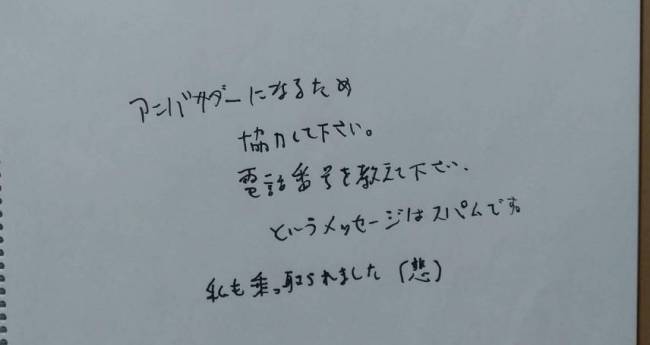 アンバサダーになるため
協力して下さい。
電話番号を教えて下さい.
というメッセージはスパムです。
私も乗っ取られました（悲）